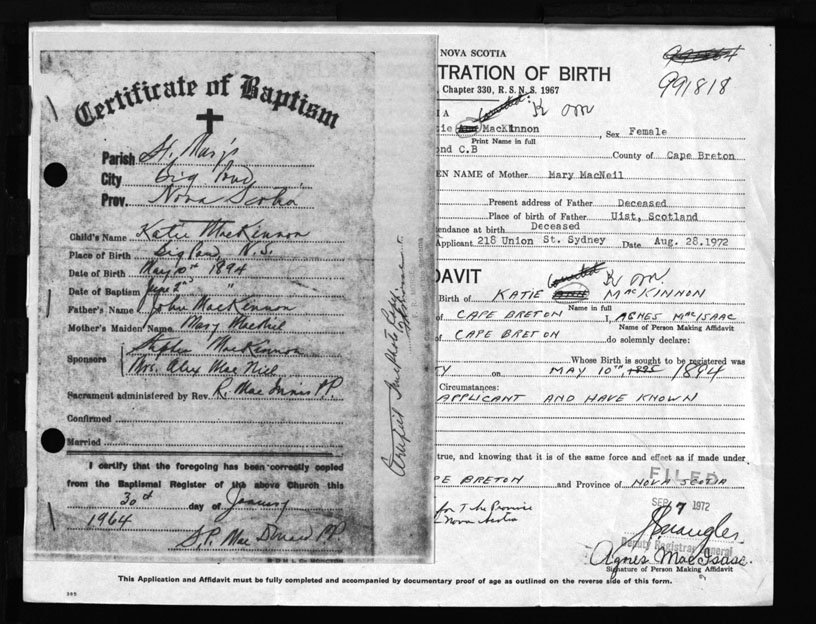 Certificate of Baptism
Parish St. Mary's
City Big Pond
Prov. Nova Scotia
Child's Name Katie MacKinnon
Place of Birth Big Pond, N.S.
Date of Birth May 10th 1894
Date of Baptism June 2nd "
Father's Name John MacKinnon
Mother's Maiden Name Mary MacNeil
Sponsors Stephen MacKinnon
Mrs. Alex Mac Neil
Sacrament administered by Rev. R. Mac Innis P.P.
Confirmed
Married
I certify that the foregoing has been correctly copied
from the Baptismal Register of the above Church this
30th day of January
1964
Certified True Photo Copy
NOVA SCOTIA
TRATION OF BIRTH
Chapter 330, R.S.N.S. 1967
991818
K om
MacKinnon, Sex Female
Print Name in full
ond C.B
County of Cape Breton
EN NAME of Mother Mary MacNeil
Present address of Father Deceased
Place of birth of Father Uist, Scotland
endance at birth Deceased
Applicant 218 Union St. Sydney Date Aug. 28.1972
DAVIT
K om.
Birth of KATIE ANN MACKINNON
Name in full
of CAPE BRETON I, AGNES MACISAAC
Name of Person Making Affidavit
of CAPE BRETON do solemnly declare:
Whose Birth is sought to be registered was
TY on MAY 10TH, 1895 1894
Circumstances:
APPLICANT AND HAVE KNOWN
true, and knowing that it is of the same force and effect as if made under
PE BRETON and Province of NOVA SCOTIA
FILED
SEP 7 1972
for The Province
Nova Scotia
Deputy Registrar General
Agnes MacIsaac
Signature of Person Making Affidavit
This Application and Affidavit must be fully completed and accompanied by documentary proof of age as outlined on the reverse side of this form.